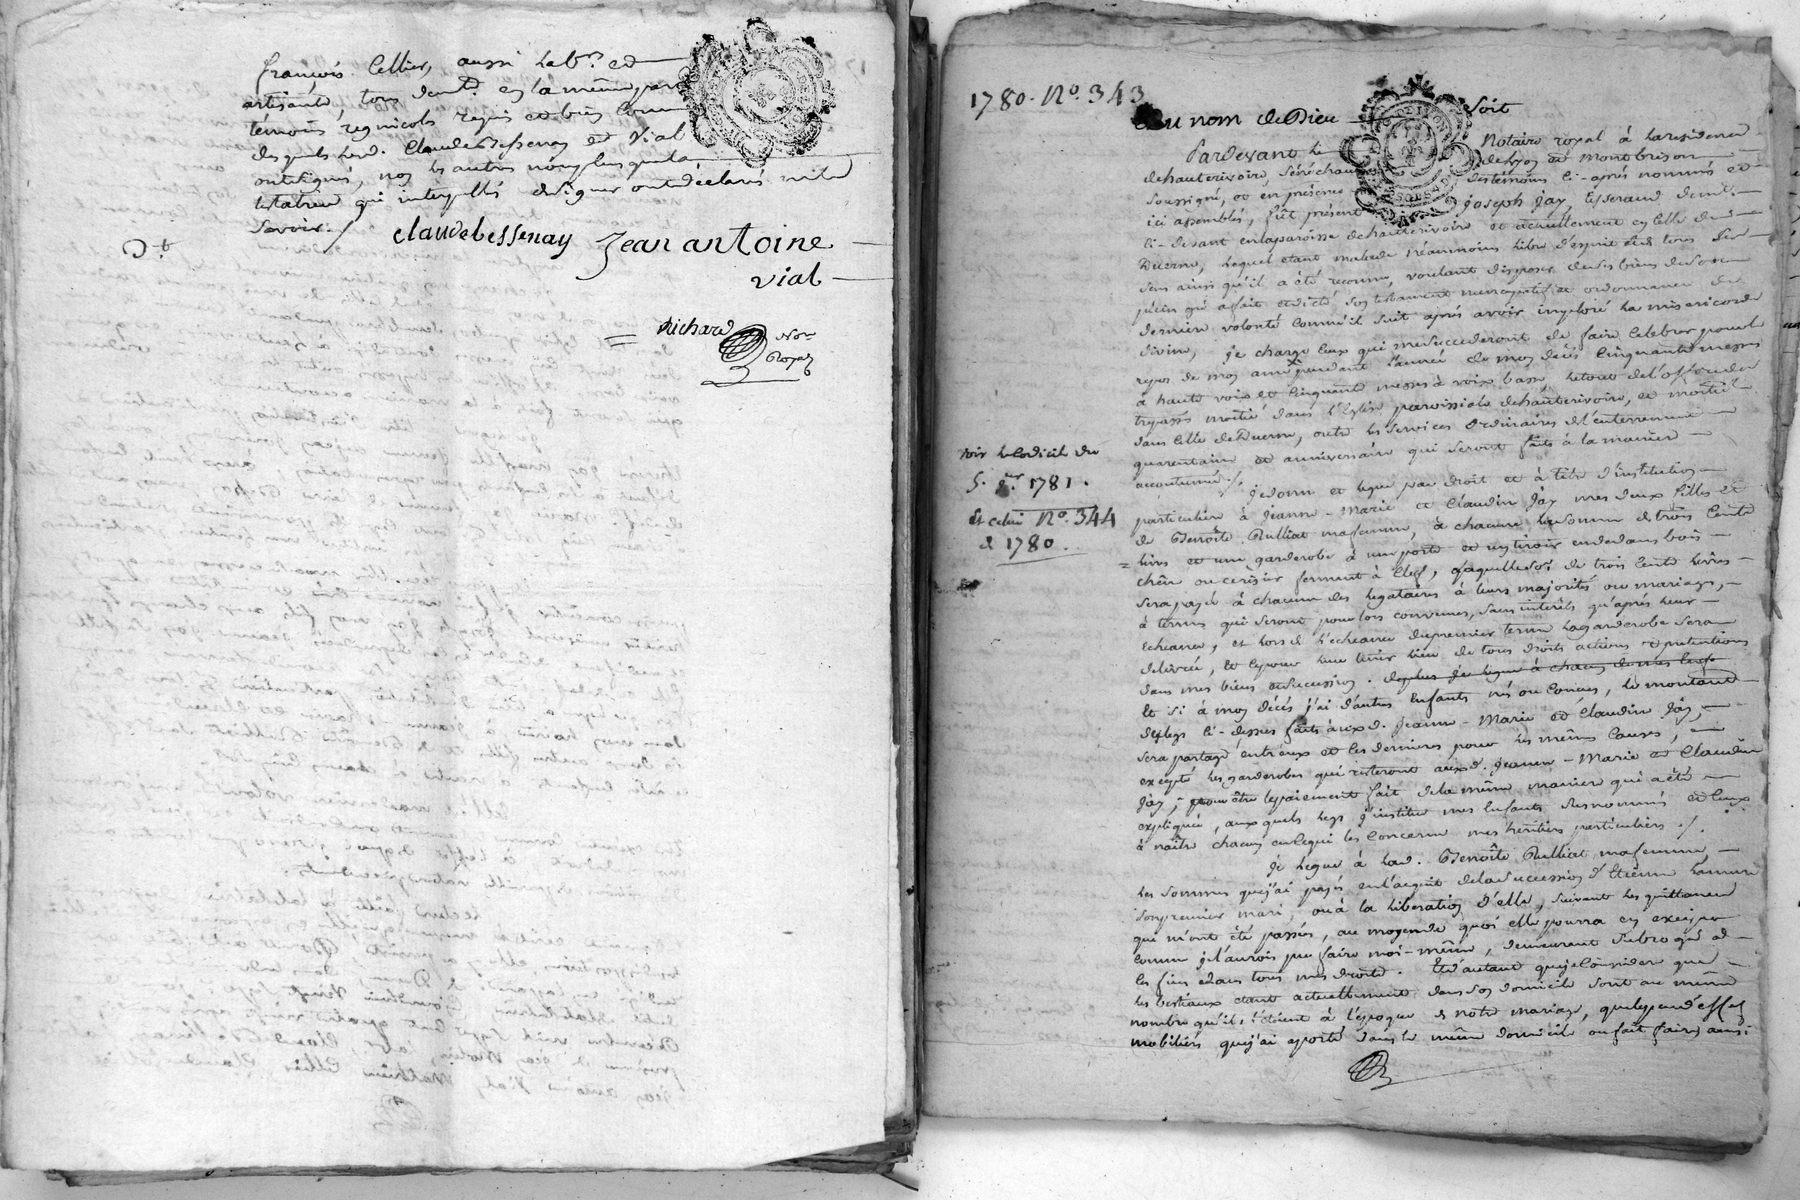 françois Cellier, aussi lab.r et
artisants tous dem.ts en la même par.
témoins regnicols requis et bien connus
desquels led. Claude Bessenay et Vial
ont signés, non les autres non plus que la
testatrice qui interpellés de signer ont déclarés ne le
savoir ./
claudebessenay Jean antoine
vial
Richard
Nore
Royal
1780. No. 343
Au nom de Dieu soit
Pardevant le Notaire royal à la residence
de hauterivoire, sénéchaussée de Lyon et Montbrison
soussigné, et en présence des témoins ci-après nommés et
ici assemblés, fût présent Joseph Jay, tisserand dem.t
ci-devant en la paroisse de hauterivoire et actuellement en celle de
Duerne, lequel étant malade néanmoins libre d'esprit et de tous ses
sens ainsi qu'il a été reconnu, voulant disposer de ses biens de son
plein gré a fait et dicté son testament nuncupatif et ordonnance de
derniere volonté comme il suit après avoir imploré la misericorde
divine, je charge ceux qui me succederont de faire celebrer pour le
repos de mon ame pendant l'année de mon décès cinquante messes
à haute voix et cinquante messes à voix basse, le tout de l'office des
trepassés moitié dans l'Eglise paroissiale de hauterivoire, et moitié
dans celle de Duerne, outre les services ordinaires de l'enterrement
quarantaine et anniversaire qui seront faits à la maniere
accoutumée ./.
voir le Codicile du
5. 1781.
et celui No. 344
de 1780.
Je donne et legue par droit et à titre d'institution
particuliere à Jeanne-Marie et Claudine Jay mes deux filles et
de Benoîte Rulliat ma femme, à chacune la somme de trois cents
livres et une garderobe à une porte et un tiroir en dedans bois
chêne ou cerisier fermant à clef, laquelle so.e de trois cents livres
sera payée à chacune des legataires à leurs majorités ou mariage,
à termes qui seront pour lors convenus, sans interêts qu'après leur
échéance, et lors de l'echeance du premier terme la garderobe sera
delivrée, et ce pour leur tenir lieu de tous droits actions et pretentions
dans mes biens et succession. de plus je legue à chacun de mes
Et si à mon décès j'ai d'autres Enfants nés ou conçus, le montant
des legs ci-dessus faits auxd. Jeanne-Marie et Claudine Jay,
sera partagé entr'eux et les derniers pour les mêmes causes,
excepté les garderobes qui resteront auxd. Jeanne-Marie et Claudine
Jay; pour être le paiement fait de la même maniere qui a été
expliquée, auxquels legs j'institue mes Enfants susnommés et ceux
à naître chacun en ce qui les concerne mes héritiers particuliers ./.
Je legue à lad. Benoîte Rulliat ma femme
les sommes que j'ai payés en l'acquit de la succession d'Etienne
son premier mari, ou à la liberation d'elle, suivant les quittances
qui m'ont été passées, au moyen de quoi elle pourra en exciper
comme je l'aurois pu faire moi-même, demeurant subrogée à
ces fins dans tous mes droits. Et d'autant que je considere que
les bestiaux étant actuellement dans son domicile sont au même
nombre qu'ils étoient à l'époque de notre mariage, quelques d'effets
mobiliers que j'ai aporté dans le même domicile ou fait faire, ainsi